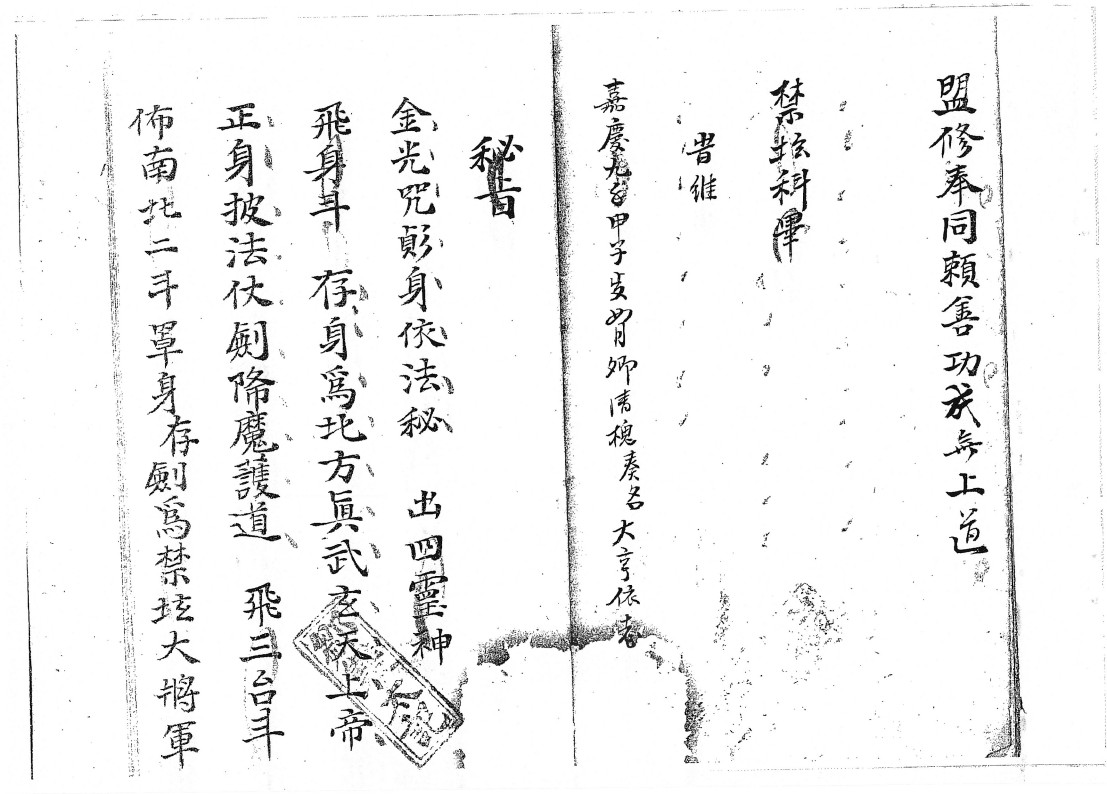 盟修奉同賴善功成無上道
禁坛科畢
旹維
嘉慶九年甲子岁如月卿清槐奏名大亨依老
秘旨
金光咒影身依法秘 出四靈神
飛身斗 存身爲北方眞武玄天上帝
正身披法仗劍降魔護道 飛三台斗
佈南北二斗罩身存劍爲禁坛大將軍